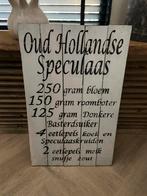 Oud Hollandse
Speculaas
250 gram bloem
150 gram roomboter
125 gram Donkere
Basterdsuiker
4 eetlepels koek en
Speculaaskruiden
2 eetlepels melk
snufje zout